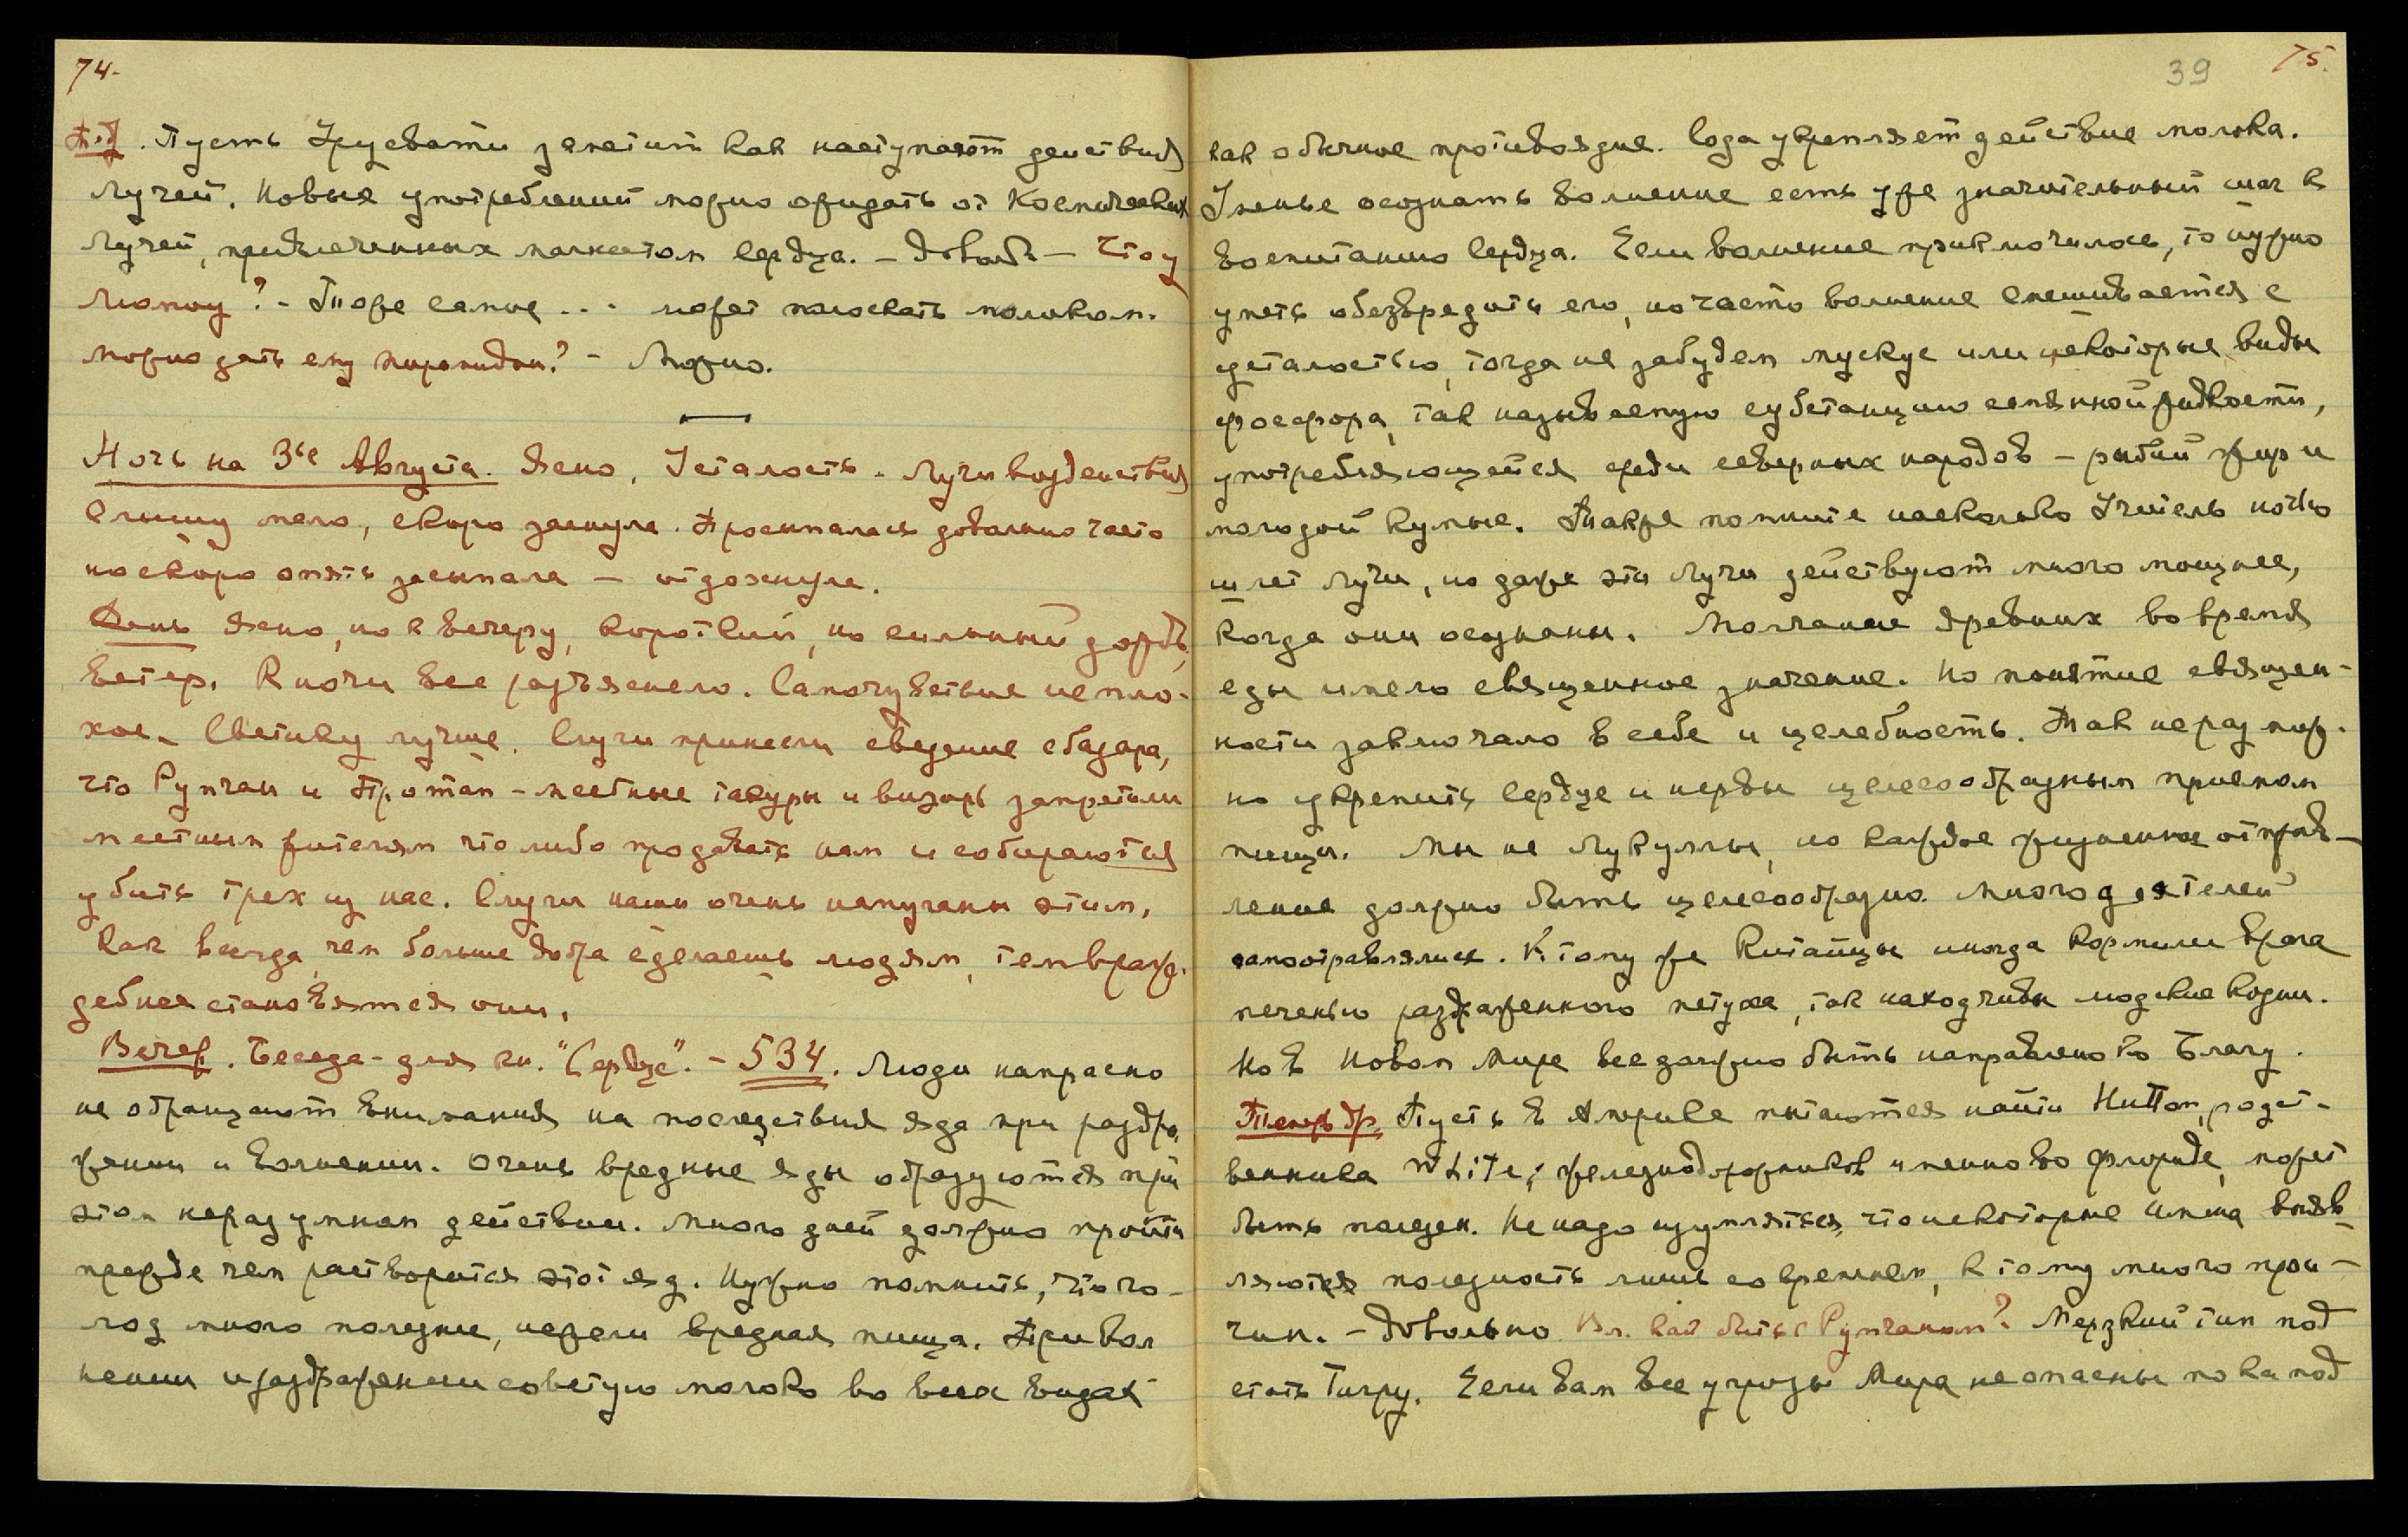 74.
Т.Д. Пусть Урусвати заметит как наступают действия
Лучей. Новых употреблений можно ожидать от Космических
Лучей, привлеченных магнетом Сердца. – Довольн – Что у
Моему? – Тоже самое . . . может полоскать молоком.
Можно дать ему пирамидон? – Можно.
Ночь на 3ье Августа. Ясно. Усталость. Лучи воздействия
слышу мало, скоро заснула. Просыпалась довольно часто
но скоро опять засыпала – отдохнула.
День Ясно, но к вечеру, короткий, но сильный дождь,
ветер. К ночи все разъяснело. Самочувствие непло-
хое. Светику лучше. Слуги принесли сведение с базара,
что Рупчан и Протап – местные такуры и визирь запретили
местным жителям что либо продавать нам и собираются
убить трех из нас. Слуги наши очень напуганы этим.
Как всегда, чем больше добра сделаешь людям, тем враж-
дебнее становятся они.
Вечер. Беседа – для кн. "Сердце". – 534. Люди напрасно
не обращают внимания на последствия яда при раздра-
жении и волнении. Очень вредные яды образуются при
этом неразумном действии. Много дней должно пройти
прежде чем растворится этот яд. Нужно помнить, что го-
лод много полезнее, нежели вредная пища. При вол
нении и раздражении советую молоко во всех видах
39 75.
как обычное противоядие. Сода укрепляет действие молока.
Уменье осознать волнение есть уже значительный шаг к
воспитанию Сердца. Если волнение приключилось, то нужно
уметь обезвредить его, но часто волнение смешивается с
усталостью, тогда не забудем мускус или некоторые виды
фосфора, так называемую субстанцию семянной жидкости,
употребляющейся среди северных народов – рыбий жир и
молодой кумыс. Также помните насколько Учитель ночью
шлет Лучи, но даже эти Лучи действуют много мощнее,
когда они осознаны. Молчание древних во время
еды имело священное значение. Но понятие священ-
ности заключало в себе и целебность. Так не раз мож-
но укрепить сердце и нервы целесообразным приемом
пищи. Мы не Лукуллы, но каждое жизненное отправ-
ление должно быть целесообразно. Много деятелей
самоотравлялись. К тому же Китайцы иногда кормили врага
печенью раздраженного петуха, так находчивы людские козни.
Но в Новом Мире все должно быть направлено ко Благу.
Теперь др. Пусть в Америке пытаются найти Hutton, родст-
венника White; железнодорожников именно во Флориде, может
быть полезен. Не надо изумляться, что некоторые имена выяв-
ляются полезность лишь со временем, к тому много при-
чин. – Довольно Вл. Как быть с Рупчаном? Мерзкий тип под
стать Тигру. Если Вам все угрозы Мира не опасны пока под